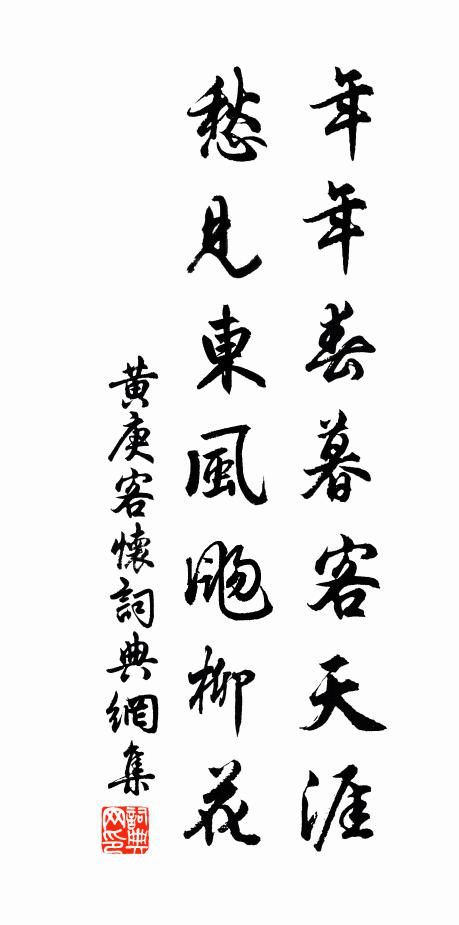 年年春暮客天涯
愁見東風颺柳花
黃庚客懷詞典網集
詞典網印